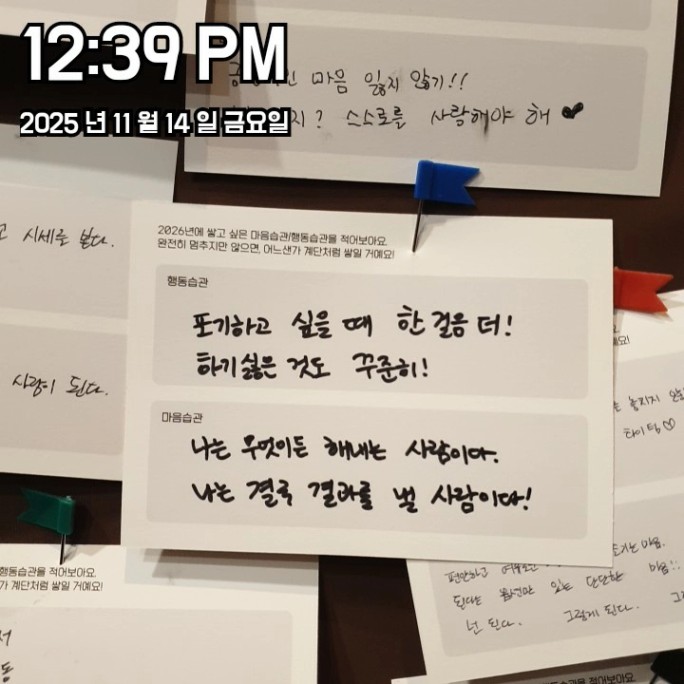 12:39 PM
2025 년 11 월 14 일 금요일
마음 잃지 않기!!
지? 스스로를 사랑해야 해
고 시세를 본다.
사람이 된다.
2026년에 쌓고 싶은 마음습관/행동습관을 적어보아요.
완전히 멈추지만 않으면, 어느샌가 계단처럼 쌓일 거예요!
행동습관
포기하고 싶을 때 한 걸음 더!
하기 싫은 것도 꾸준히!
마음습관
나는 무엇이든 해내는 사람이다.
나는 결국 결과를 낼 사람이다!
놓지지 않
화이팅♡
행동습관을 적어보아요.
가 계단처럼 쌓일 거예요!
편안하고
마음.
있는 단단한 마음!!
넌 된다. 그렇게 된다.
서
동